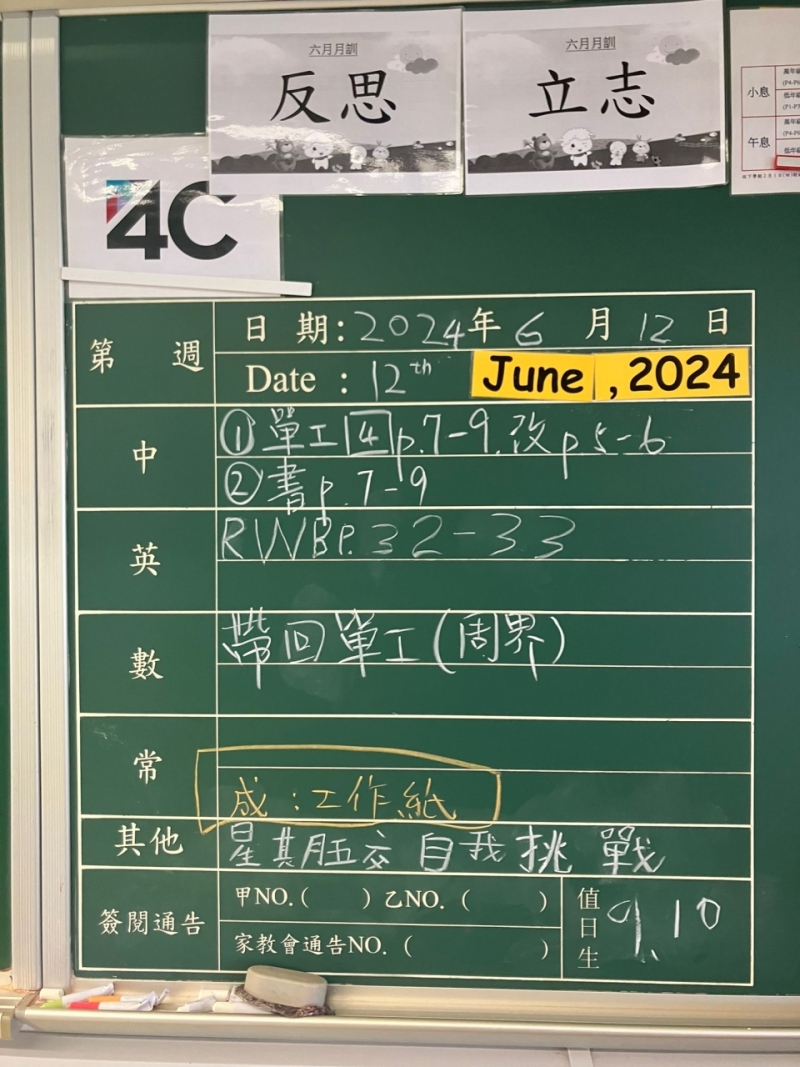 六月月訓
反思
六月月訓
立志
小息
午息
4C
第 週
日 期:2024年 6 月 12 日
Date : 12th June ,2024
中
①單工4p.7-9.改p5-6
②書p.7-9
英
RWBP.32-33
數
帶回單工(周界)
常
成:工作紙
其他
星期五交自我挑戰
簽閱通告
甲NO.( )乙NO.( )
家教會通告NO.( )
值日生
9、10